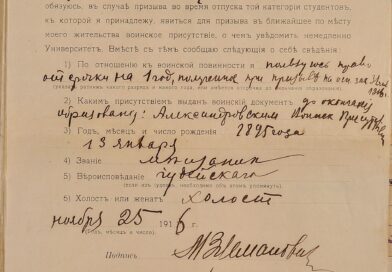 обязуюсь, въ случаѣ призыва во время отпуска той категоріи студентовъ,
къ которой я принадлежу, явиться для призыва въ ближайшее по мѣсту
моего жительства воинское присутствіе, о чемъ увѣдомить немедленно
Университетъ. Вмѣстѣ съ тѣмъ сообщаю слѣдующія о себѣ свѣдѣнія:
1) По отношенію къ воинской повинности я пользуюсь право
отсрочки на 1 годъ, получена при призывѣ
2) Какимъ присутствіемъ выданъ воинскій документъ до окончанія
образованія: Александровскимъ Воинск Присут
3) Годъ, мѣсяцъ и число рожденія 1895 года
13 января
4) Званіе мѣщанин
5) Вѣроисповѣданіе іудейскаго
(если изъ необходимо объ этомъ упомянуть).
6) Холостъ или женатъ холост
ноября 25 1916 г.
(Годъ, мѣсяцъ и число)
Подпись